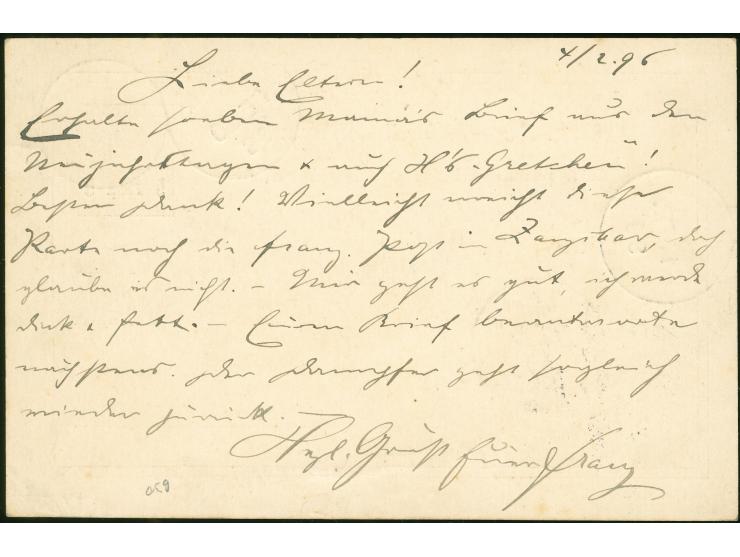 4/2.96
Liebe Eltern!
Erhalte soeben Mama's Brief aus den
Neujahrstagen & auch H's "Gretchen"!
Besten Dank! Vielleicht erreicht diese
Karte noch die franz. Post in Zanzibar, doch
glaube es nicht. – Mir geht es gut, ich werde
dick & fett. – Euren Brief beantworte
nächstens. Der Dampfer geht sogleich
wieder zurück.
Hzl. Gruß Euer Franz
059